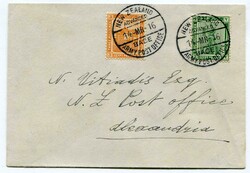 NEW ZEALAND
ADVANCED
14 MR 16
BASE
ARMY POST OFFICE
NEW ZEALAND
ADVANCED
14 MR 16
BASE
ARMY POST OFFICE
N. Vitiadis Esq.
N. Z Post office
Alexandria